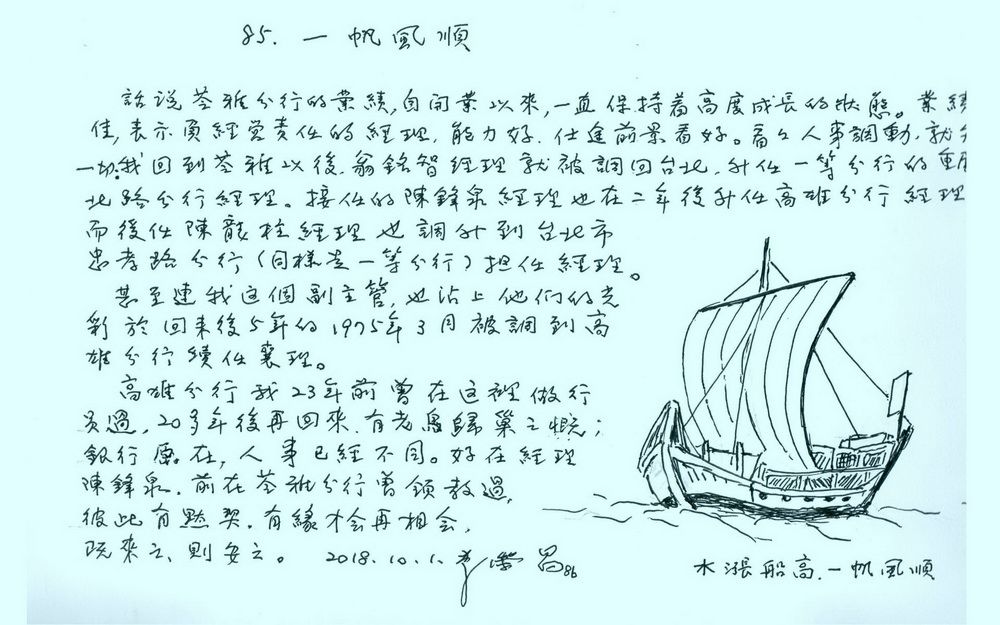 85. 一帆風順
話说苓雅分行的業績,自開業以來,一直保持着高度成長的狀態。業績
佳,表示負經営責任的經理,能力好.仕途前景看好。看人事調動,就知
一切.我回到苓雅以後.翁銘智經理就被調回台北,升任一等分行的重
北路分行經理。接任的陳鋒泉經理也在二年後升任高雄分行經理
而後任陳龍柱經理也調升到台北市
忠孝路分行(同樣是一等分行)担任經理。
甚至連我这個副主管,也沾上他們的光
彩於回来後5年的1975年3月被調到高
雄分行續任襄理。
高雄分行我23年前曾在这裡做行
员過,20多年後再回來.有老鳥歸巢之慨;
銀行應在,人事已經不同。好在經理
陳鋒泉.前在苓雅分行曾領教過,
彼此有默契.有緣才会再相会.
既來之、則安之。 2018.10.1. 86
水漲船高.一帆風順